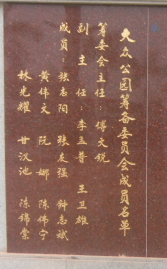 大众公园筹备委员会成员名单
筹委会主任：傅文锐
副主任：李立普 王卫雄
成员：张志阳 张友强 钟志斌
黄伟文 阮娜 陈伟宁
林光耀 甘汉池 陈锦棠